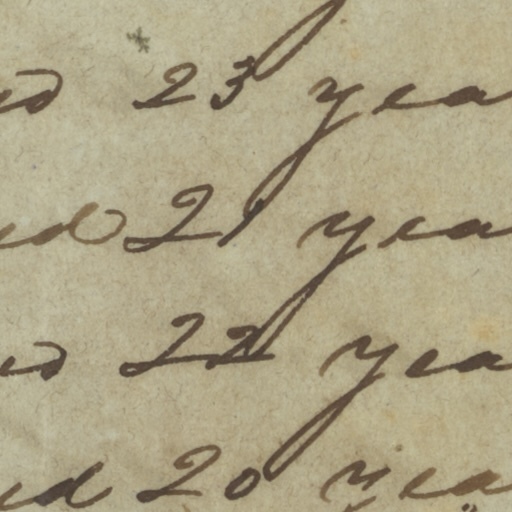 ed 23 yea
ed 21 yea
ed 22 yea
ed 20 yea